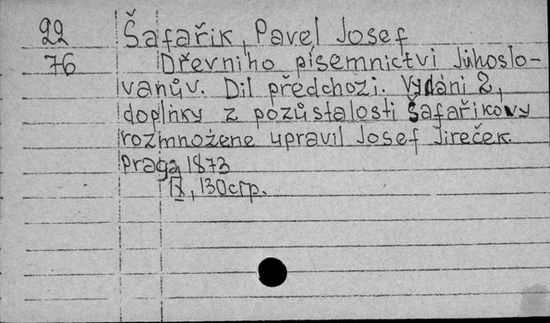 22 Šafařik, Pavel Josef
76 Dřevniho pisemnictvi Jihoslo-
vanův. Dil předchozi. Vydáni 2,
doplňky z pozůstalosti Šafařikovy
rozmnožene upravil Josef Jireček.
Praga, 1873
IX, 130 стр.